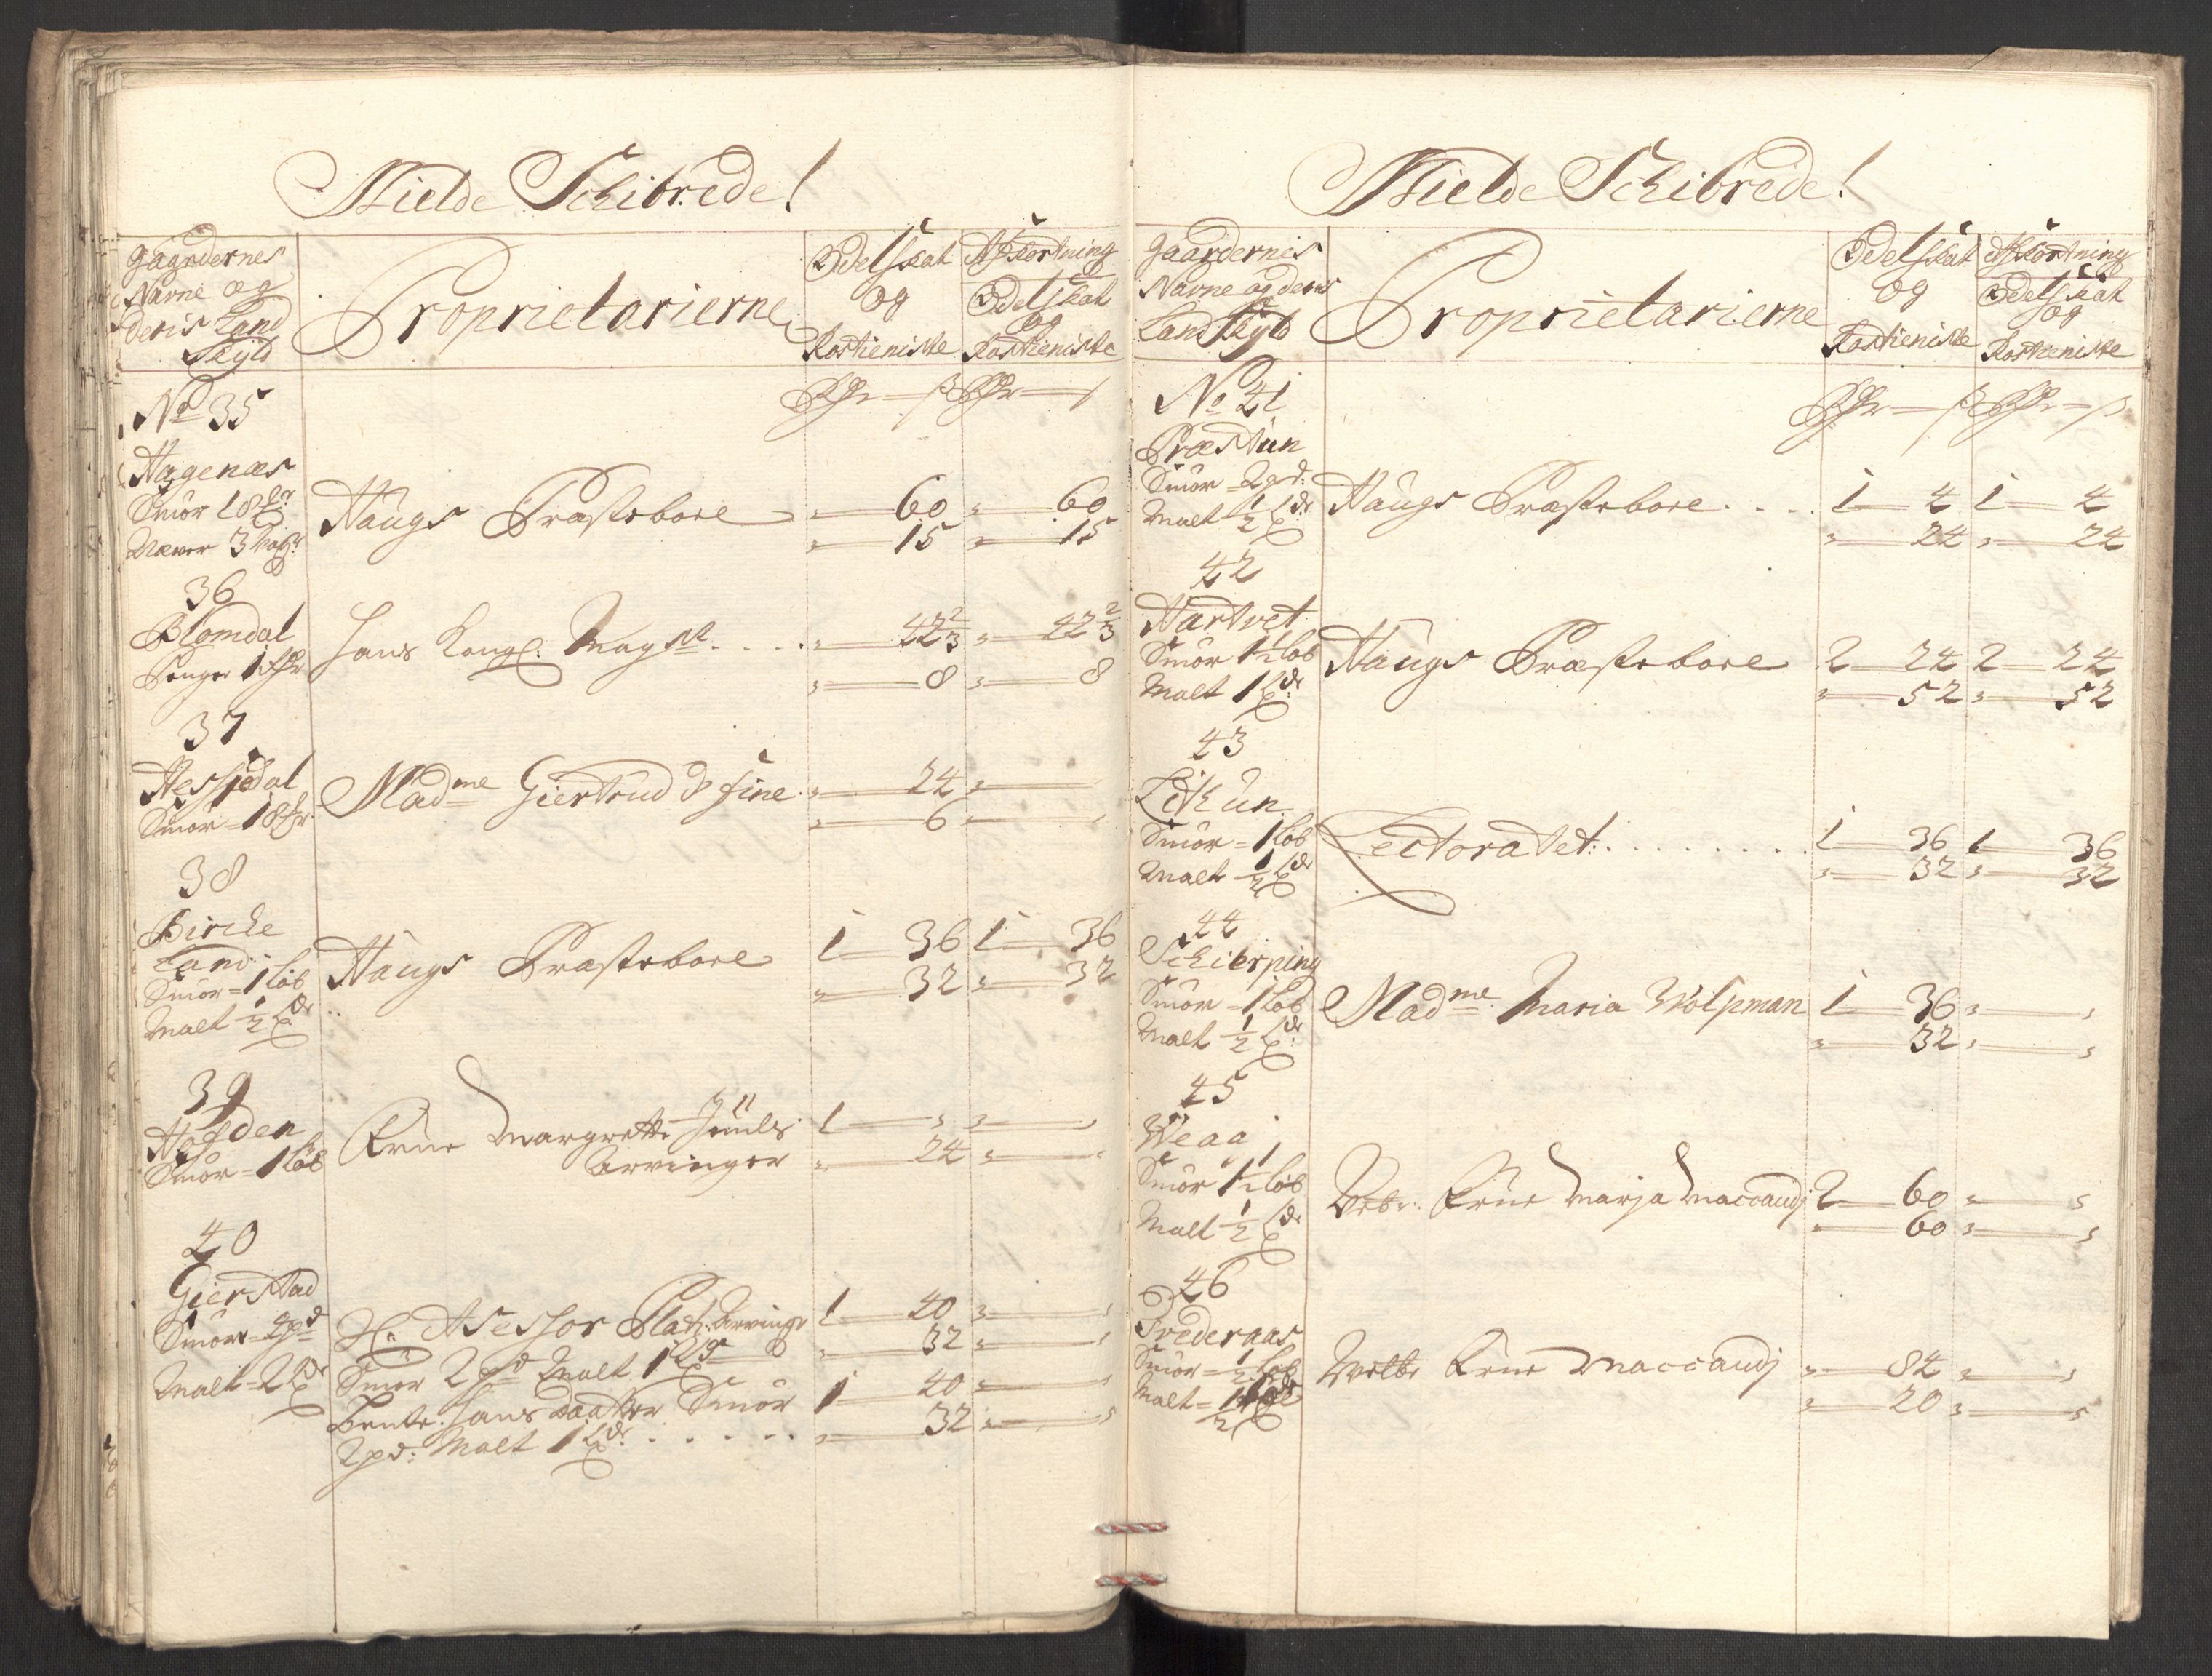 Mielde Schibrede!
Gaardernes
Navne og
deris Land
Skyld
Proprietarierne
Odelskat
og
Rostieniste
Afkortning
Odelskat
og
Rostieniste
Rdr — ß Rdr — ß
No 35
Hagenæs
Smør 18
Næver 3 Vog
Haugs Præstebole
" 60 " 60
" 15 " 15
36
Blomdal
Penger 1
Hans Kongl. Mayst. . . .
" 42 2/3 " 42 2/3
" 8 " 8
37
Hessjedal
Smør = 18
Madme Giertrud d fine
" 24 "
" 6
38
Birche
Land
Smør = 1 løb
Malt 1/2
Haugs Præstebole
1 36 1 36
" 32 " 32
39
Høfden
Smør = 1 løb
Frue Margrette Juuls
Arvinger
1 " " "
" 24 " "
40
Gierstad
Smør = 2pd
Malt = 2
Hr. Asessor Arvinger
Smør 2pd Malt 1
1 40 " "
" 32 " "
Bente Hans Daatter Smør
2pd: Malt 1 . . . . .
1 40 " "
" 32 " "
Mielde Schibrede!
Gaardernes
Navne og deris
Land Skyld
Proprietarierne
Odelskat
og
Rostieniste
Afkortning
Odelskat
og
Rostieniste
Rdr — ß Rdr — ß
No 41
Præstun
Smør = 2pd:
Malt 1/2
Haugs Præstebole . . . .
1 4 1 4
" 24 " 24
42
Hartvet
Smør 1 1/2 løb
Malt 1
Haugs Præstebole
2 24 2 24
" 52 " 52
43
Litun
Smør = 1 løb
Malt 1/2
Lectoratet . . . . . . . .
1 36 1 36
" 32 " 32
44
Schierping
Smør = 1 løb
Malt 1/2
Madme Maria Wolpman
1 36 " "
" 32 " "
45
Weaa
Smør 1 1/2 løb
Malt 1/2
Welb: Frue Marja Maccaudj
2 60 " "
" 60 " "
46
Trederaas
Smør = 1/2 løb
Malt =
Welbr Frue Maccaudj
" 84 " "
" 20 " "